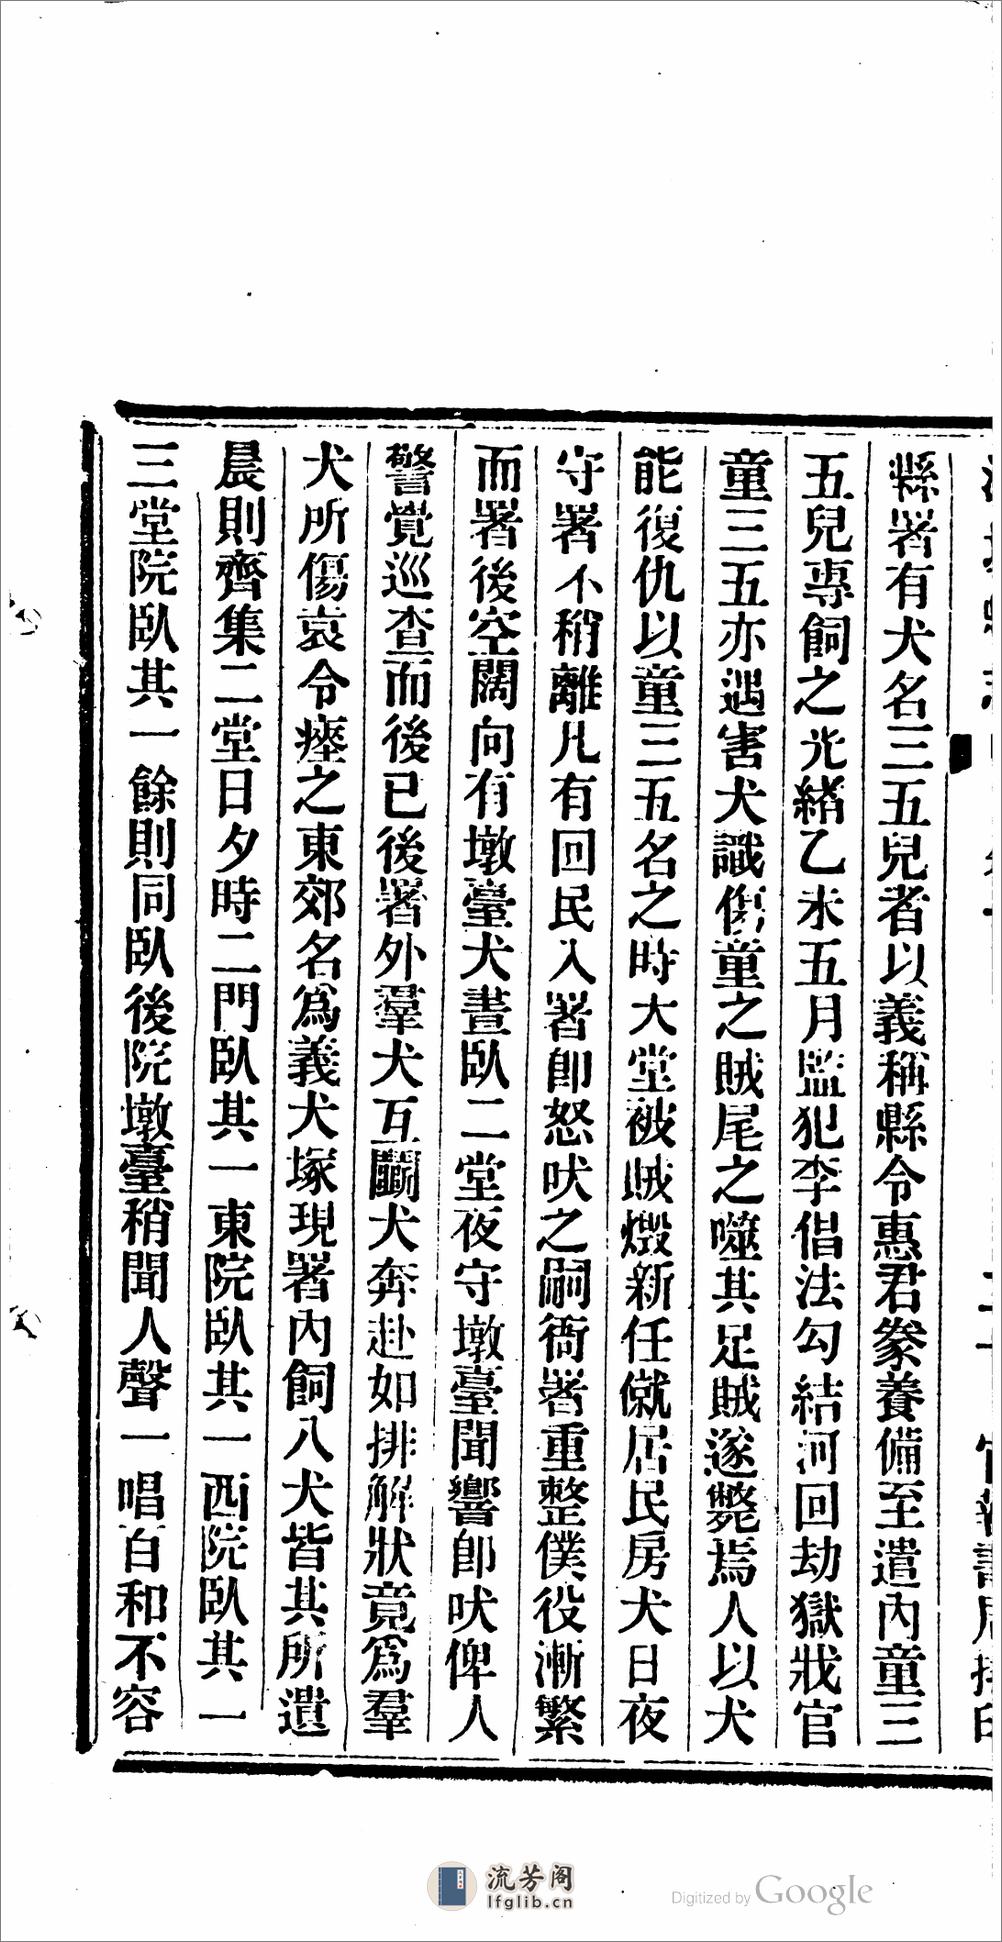 縣署有犬名三五兒者以義稱縣令惠君豢養備至遣內童三
五兒專飼之光緒乙未五月監犯李倡法勾結河回劫獄戕官
童三五亦遇害犬識傷童之賊尾之噬其足賊遂斃焉人以犬
能復仇以童三五名之時大堂被賊燬新任僦居民房犬日夜
守署不稍離凡有回民入署卽怒吠之嗣衙署重整僕役漸繁
而署後空闊向有墩臺犬晝臥二堂夜守墩臺聞響卽吠俾人
警覺巡查而後已後署外羣犬互鬭犬奔赴如排解狀竟爲羣
犬所傷哀令瘞之東郊名爲義犬塚現署內飼八犬皆其所遺
晨則齊集二堂日夕時二門臥其一東院臥其一西院臥其一
三堂院臥其一餘則同臥後院墩臺稍聞人聲一唱百和不容
流芳阁
lfglib.cn
Digitized by Google